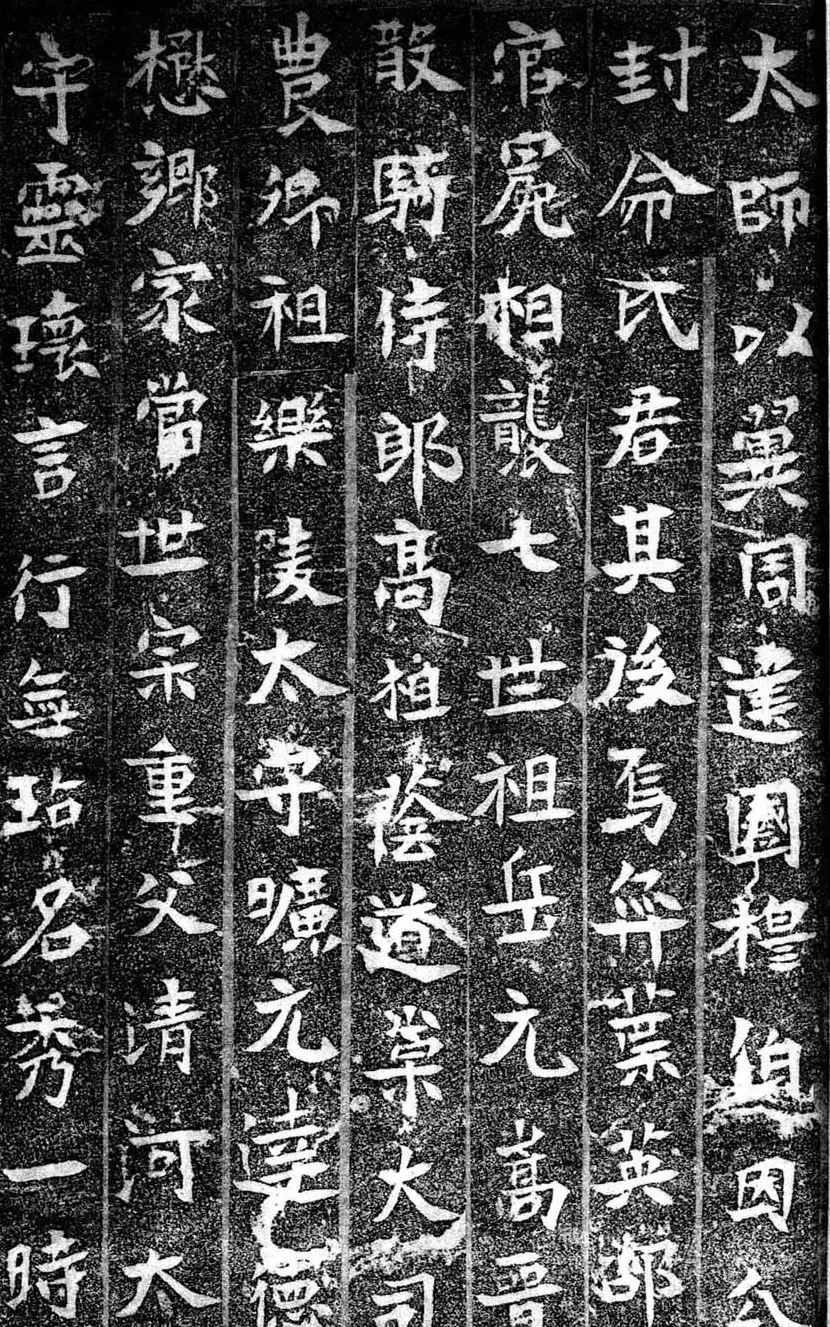 太師以翼周建國穆伯因公
封命氏君其後焉弈葉英邵
官冕相襲七世祖岳元嵩晉
散騎侍郎高祖蔭道菓大司
農卿祖樂陵太守曠元達德
懋鄉家當世宗重父清河太
守靈瓌言行無玷名秀一時